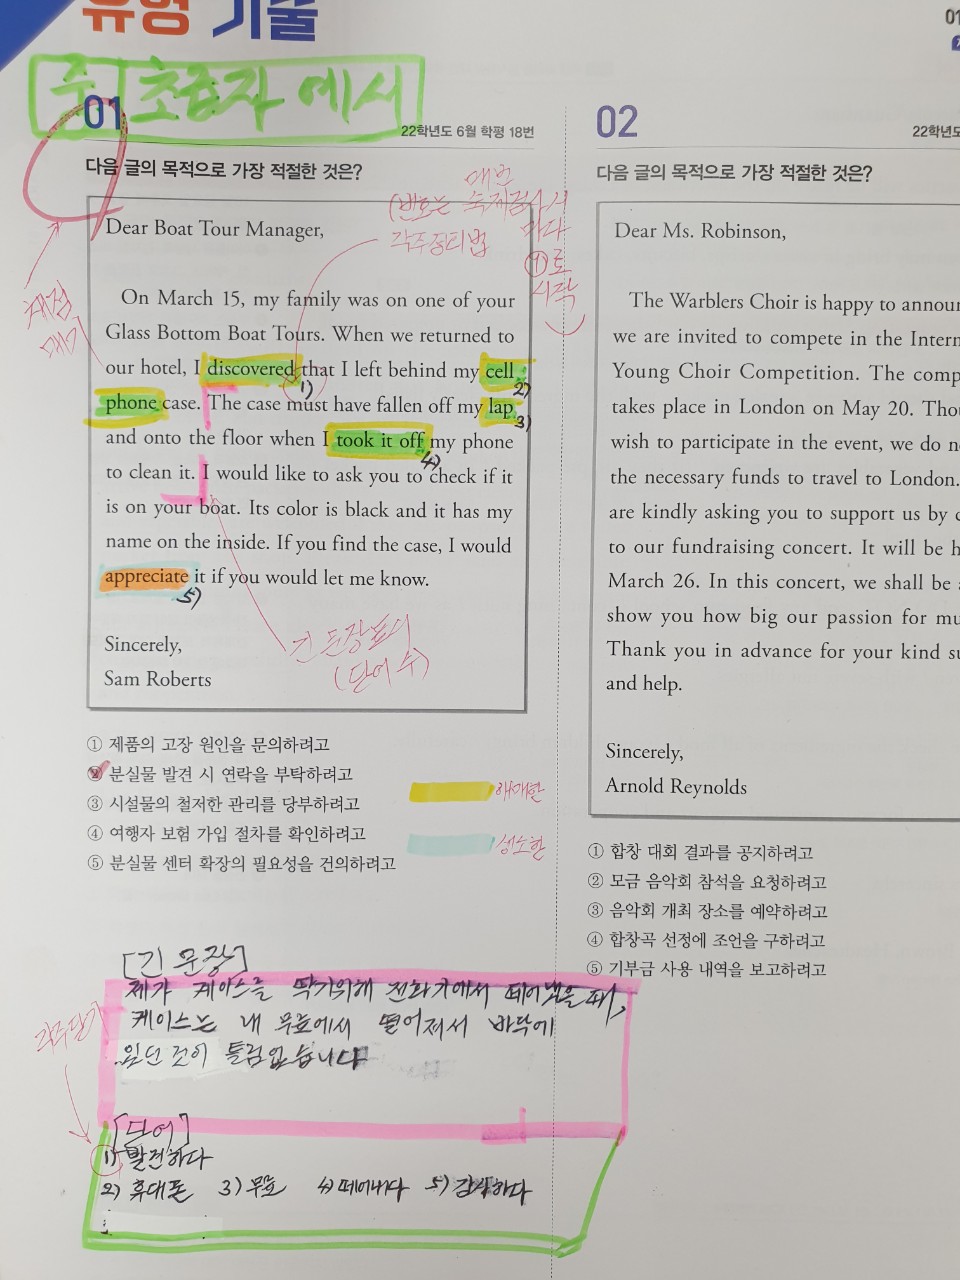 유형 기술
01
중 초급자 예시
01
22학년도 6월 학평 18번
다음 글의 목적으로 가장 적절한 것은?
매번
(번호는 숙제검사시
마다
각주정리법
①로
시작
채점
매기
Dear Boat Tour Manager,
On March 15, my family was on one of your
Glass Bottom Boat Tours. When we returned to
our hotel, I discovered that I left behind my cell
1)
2)
phone case. The case must have fallen off my lap
3)
and onto the floor when I took it off my phone
4)
to clean it. I would like to ask you to check if it
is on your boat. Its color is black and it has my
name on the inside. If you find the case, I would
appreciate it if you would let me know.
5)
긴 문장표시
(단어 수)
Sincerely,
Sam Roberts
① 제품의 고장 원인을 문의하려고
② 분실물 발견 시 연락을 부탁하려고
③ 시설물의 철저한 관리를 당부하려고
④ 여행자 보험 가입 절차를 확인하려고
⑤ 분실물 센터 확장의 필요성을 건의하려고
[긴 문장]
제가 케이스를 닦기위해 전화기에서 떼어냈을 때,
케이스는 내 무릎에서 떨어져서 바닥에
있던 것이 틀림없습니다
각주달기
[단어]
1) 발견하다
2) 휴대폰 3) 무릎 4) 떼어내다 5) 감사하다
02
22학년도
다음 글의 목적으로 가장 적절한 것은?
Dear Ms. Robinson,
The Warblers Choir is happy to announ
we are invited to compete in the Intern
Young Choir Competition. The comp
takes place in London on May 20. Thou
wish to participate in the event, we do no
the necessary funds to travel to London.
are kindly asking you to support us by c
to our fundraising concert. It will be h
March 26. In this concert, we shall be
show you how big our passion for mu
Thank you in advance for your kind su
and help.
Sincerely,
Arnold Reynolds
① 합창 대회 결과를 공지하려고
② 모금 음악회 참석을 요청하려고
③ 음악회 개최 장소를 예약하려고
④ 합창곡 선정에 조언을 구하려고
⑤ 기부금 사용 내역을 보고하려고